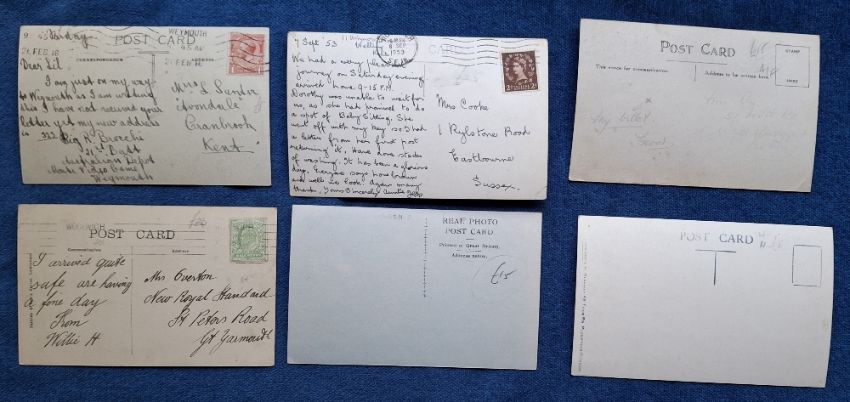 Friday
WEYMOUTH
POST CARD
21 FEB 16
Dear Lil.
I am just on my way
to Weymouth as I am writing
this I have not received your
letter yet my new address
is 352
21st Light
Australian Depot
Weymouth
Mrs L Sundor
Avondale
Cranbrook
Kent
7 Sept 53
8 SEP
1953
CARD
We had a very pleasant
journey on Saturday evening
arrived here 9-15 P.M.
Dorothy was unable to wait for
us, as she had promised to do
a spot of Baby Sitting. She
went off with my key so I had
a letter from her first post
returning it. Have done stacks
of washing. It has been a glorious
day. Everyone says how brown
and well we look! Again many
thanks, Yours Sincerely
Mrs Cooke
1 Rylstone Road
Eastbourne
Sussex.
POST CARD
£15
STAMP
HERE
This space for communication.
Address to be written here.
POST CARD
Communication
Address
I arrived quite
safe are having
a fine day
From
Willie H
Mrs Overton
New Royal Standard
St Peters Road
Gt Yarmouth
REAL PHOTO
POST CARD
Printed in Great Britain.
Address below.
£15
POST CARD